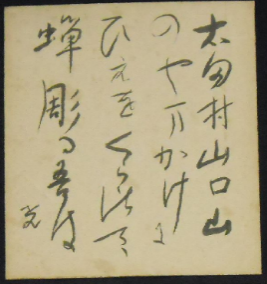 太田村山口山
のやまかけに
ひえをくらひて
蝉彫る吾は
光